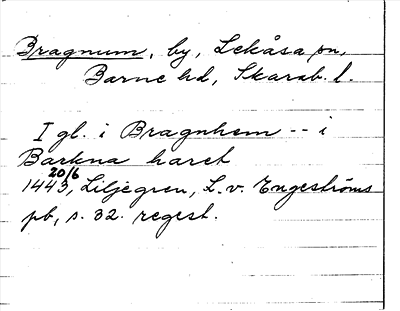 Bragnum, by, Lekåsa sn,
Barne hd, Skarab. l.
I gl. i Bragnhem -- i
Barkna häret
20/6
1443, Liljegren, L. v. Engeströms
pb, s. 32. regest.